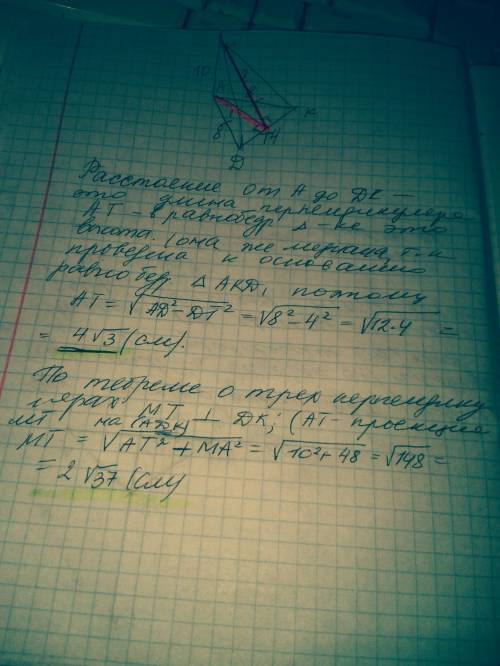 10
A
8
T
K
D
Расстояние от А до DK —
это длина перпендикуляра
АТ - в равнобедр △-ке это
высота. (она же медиана, т.к
проведена к основанию
равнобедр. △ AKD, поэтому
AT = √AD² - DT² = √8² - 4² = √12·4 =
= 4√3 (см).
По теореме о трех перпендику
лярах MT ⊥ DK; (AT - проекция
MT на (ADK)
MT = √AT² + MA² = √10² + 48 = √148 =
= 2√37 (см)